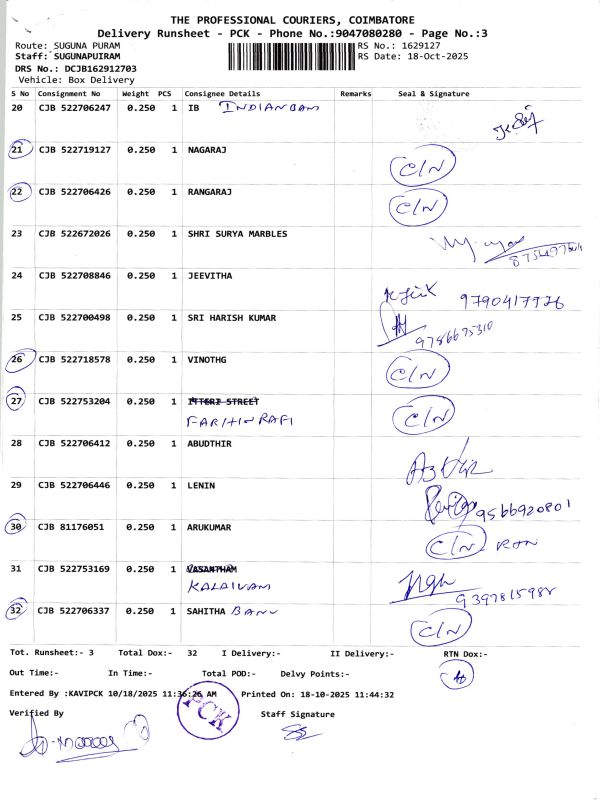 THE PROFESSIONAL COURIERS, COIMBATORE
Delivery Runsheet - PCK - Phone No.:9047080280 - Page No.:3
Route: SUGUNA PURAM RS No.: 1629127
Staff: SUGUNAPUIRAM RS Date: 18-Oct-2025
DRS No.: DCJB162912703
Vehicle: Box Delivery
S No Consignment No Weight PCS Consignee Details Remarks Seal & Signature
20 CJB 522706247 0.250 1 IB INDIANBAN
21 CJB 522719127 0.250 1 NAGARAJ C/N
22 CJB 522706426 0.250 1 RANGARAJ C/N
23 CJB 522672026 0.250 1 SHRI SURYA MARBLES
24 CJB 522708846 0.250 1 JEEVITHA 9790417726
25 CJB 522700498 0.250 1 SRI HARISH KUMAR 9786675310
26 CJB 522718578 0.250 1 VINOTHG C/N
27 CJB 522753204 0.250 1 ITTERI STREET C/N
FARHIN RAFI
28 CJB 522706412 0.250 1 ABUDTHIR
29 CJB 522706446 0.250 1 LENIN 9566920801
30 CJB 81176051 0.250 1 ARUKUMAR C/N RTN
31 CJB 522753169 0.250 1 VASANTHAM
KALAIVAM 9397815988
32 CJB 522706337 0.250 1 SAHITHA BANU C/N
Tot. Runsheet:- 3 Total Dox:- 32 I Delivery:- II Delivery:- RTN Dox:-
Out Time:- In Time:- Total POD:- Delvy Points:-
Entered By :KAVIPCK 10/18/2025 11:36:26 AM Printed On: 18-10-2025 11:44:32
PCK
Verified By Staff Signature